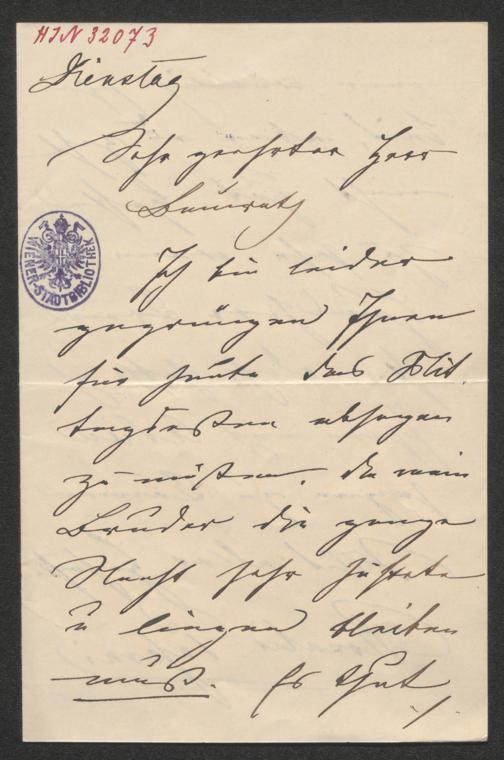 HIN 32073
Dienstag
Sehr geehrter Herr
Baurath
WIENER-STADTBIBLIOTHEK
Ich bin leider
gezwungen Ihnen
für heute das Mit,
tagsessen absagen
zu müßen, da mein
Bruder die ganze
Nacht sehr hustete
u liegen bleiben
muß. Es thut
./.